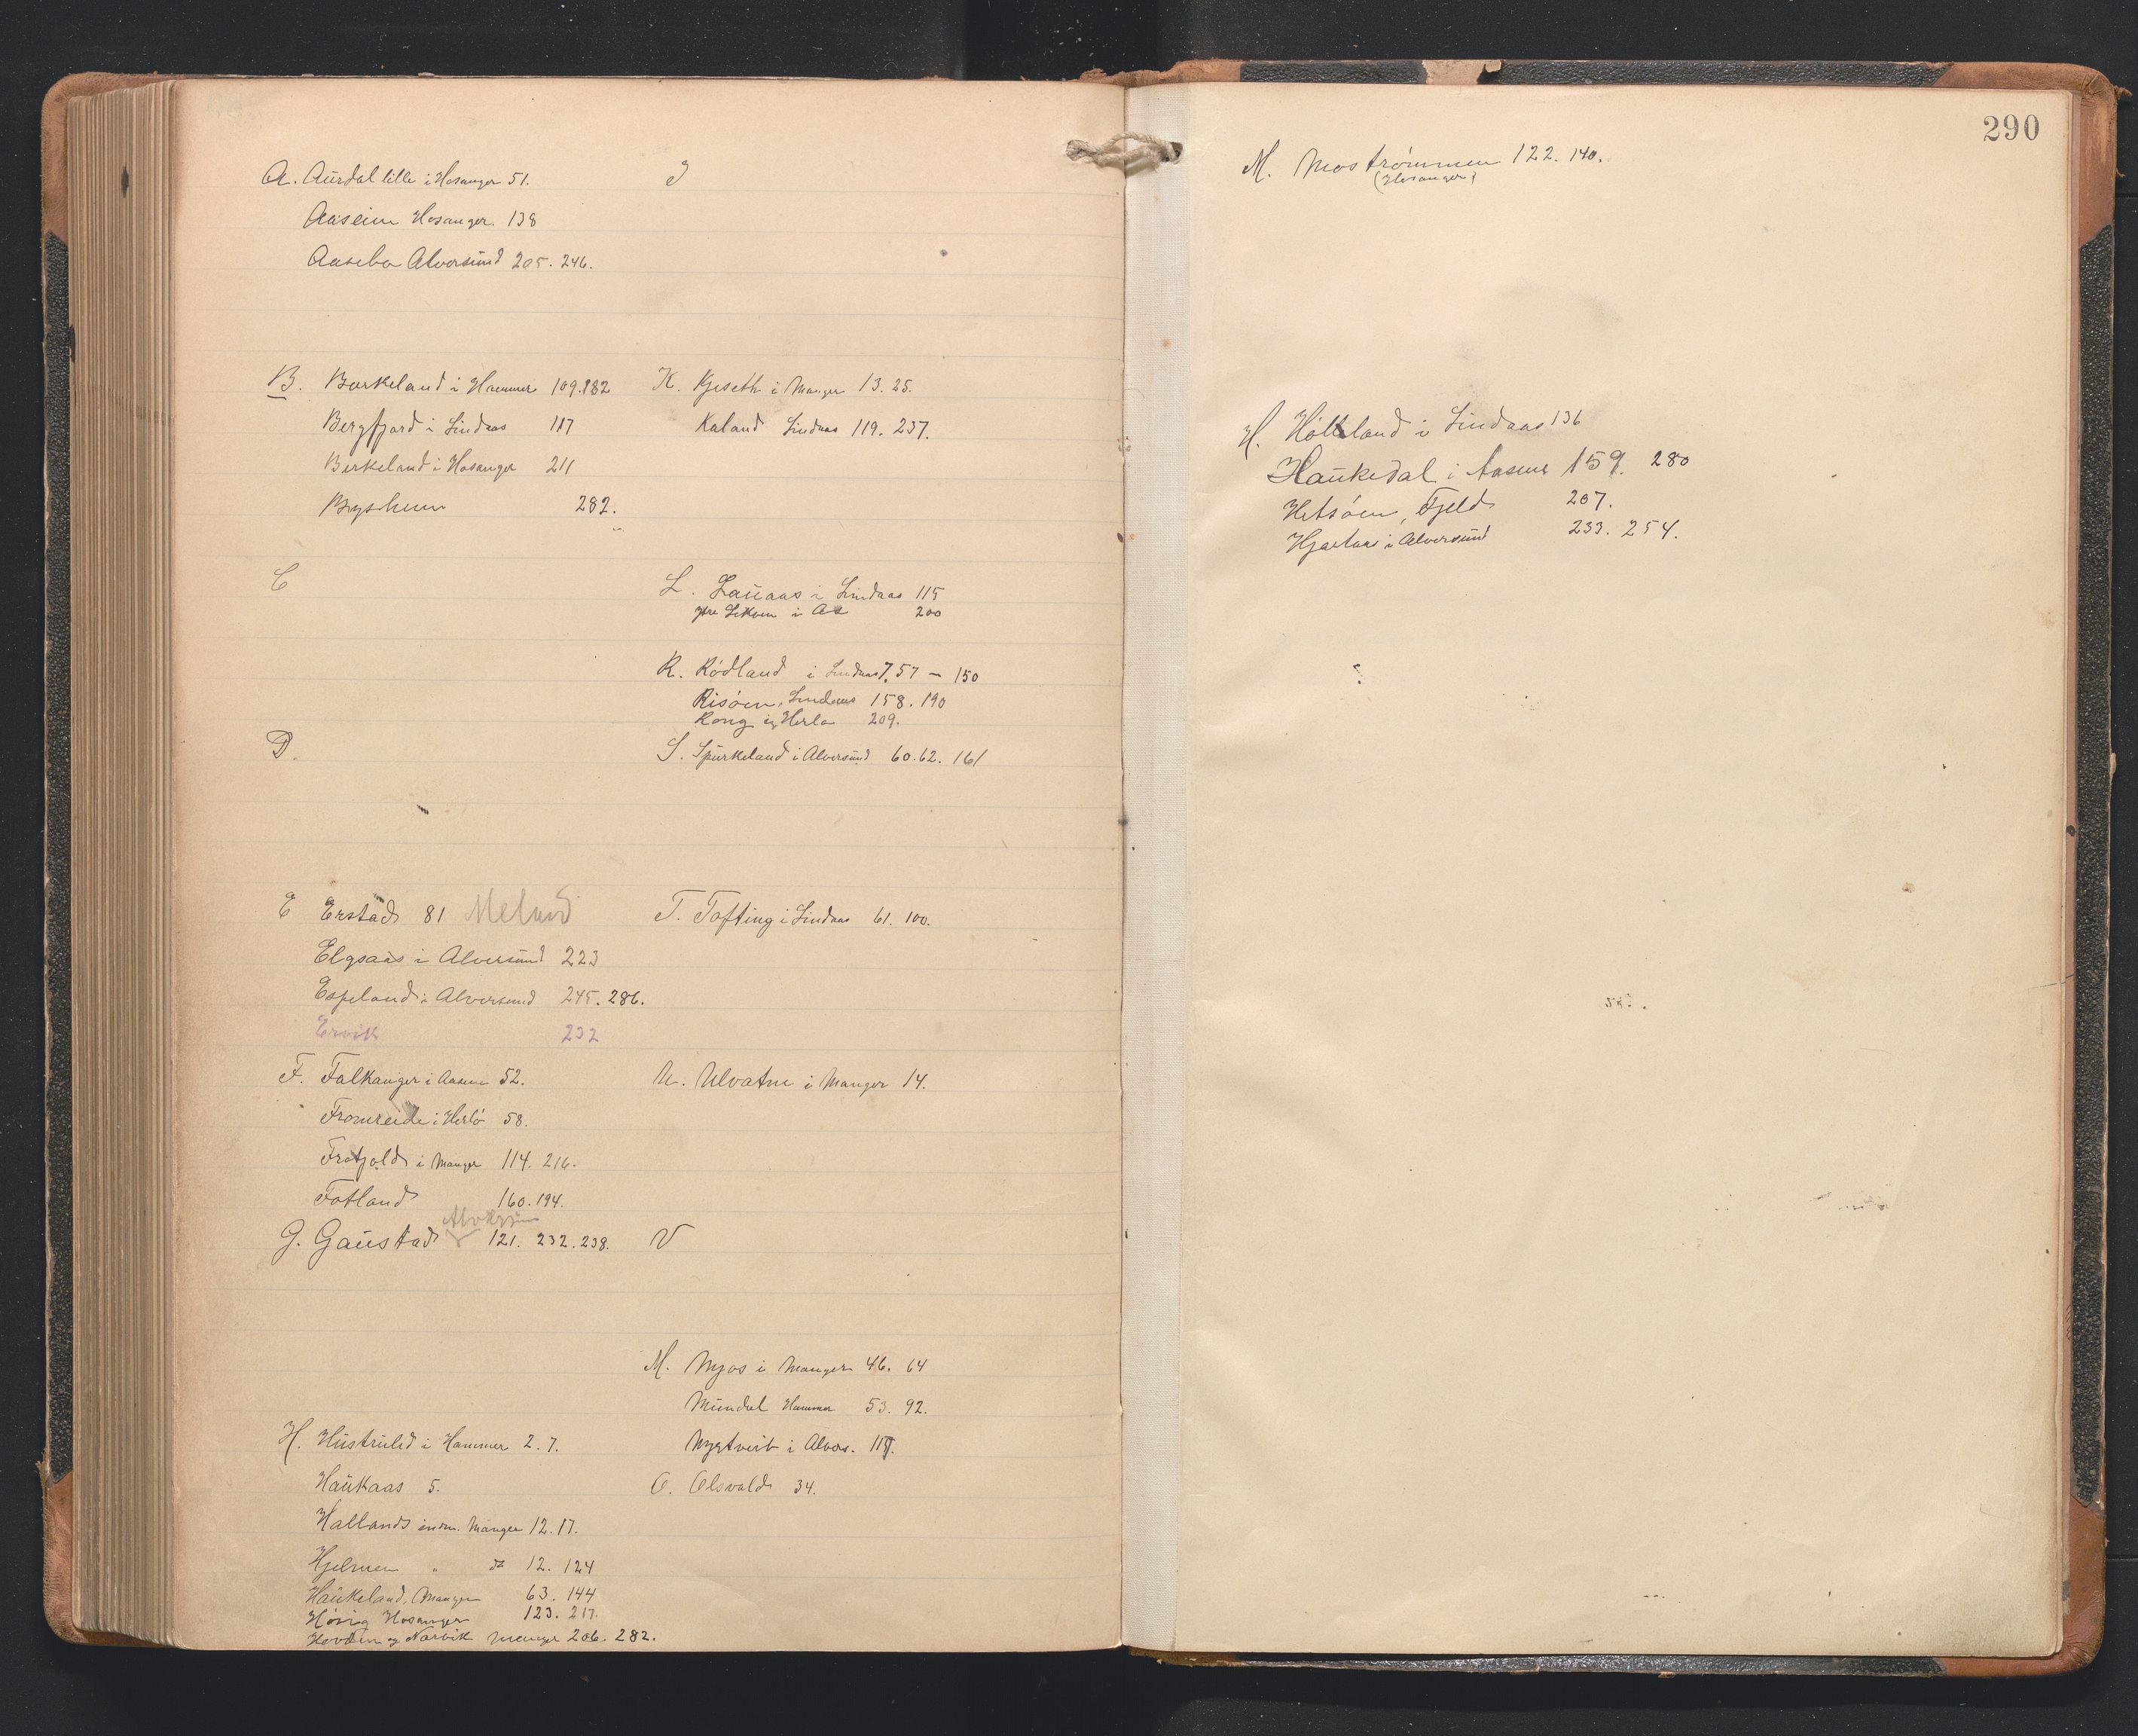 A. Aurdal lille i Hosanger 51.
Aaseim Hosanger. 138
Aasebø Alversund 205. 246.
B. Borkeland i Hammer 109. 182
Bergfjord i Lindaas 117
Birkeland i Hosanger 211
Brysheim 282.
C
D.
E Erstad 81 Meland
Elgsaas i Alversund 223
Espeland i Alversund 245. 286.
Ervik 232
F. Falkanger i Aasene 52.
Fromreide i Herlö 58.
Frotjold i Manger 114. 216.
Fotland 160. 194.
G. Gaustad 121. 232. 238.
H. Hustruli i Hammer 2. 7.
Haukaas 5.
Halland indre. Manger 12. 17.
Hjelmen " do 12. 124
Haukeland, Manger 63. 144
Hösig Hosanger 123. 217.
Hovden og Narvik Manger 206. 282.
J
K. Kjeseth i Manger 13. 25.
Kaland Lindaas 119. 237.
L. Lauaas i Lindaas 115
ytre i As 200
R. Rödland i Lindaas 7. 57 – 150
Risöen, Lindaas 158. 190
Rong i Herlø 209.
S. Spurkeland i Alversund 60. 62. 161
T. Tofting i Lindaas 61. 100.
U. Ulvatne i Manger 14.
V
M. Mjøs i Manger 46. 64
Mundal Hammer 53. 92.
Mygtveit i Alvers.
O. Olsvold 34.
290
M. Mostrømmen 122. 140.
(Hosanger)
H. Höltland i Lindaas 136
Haukedal i Aasene 159. 280
Hetsöen, Fjeld 207.
Hjertaas i Alversund 233. 254.